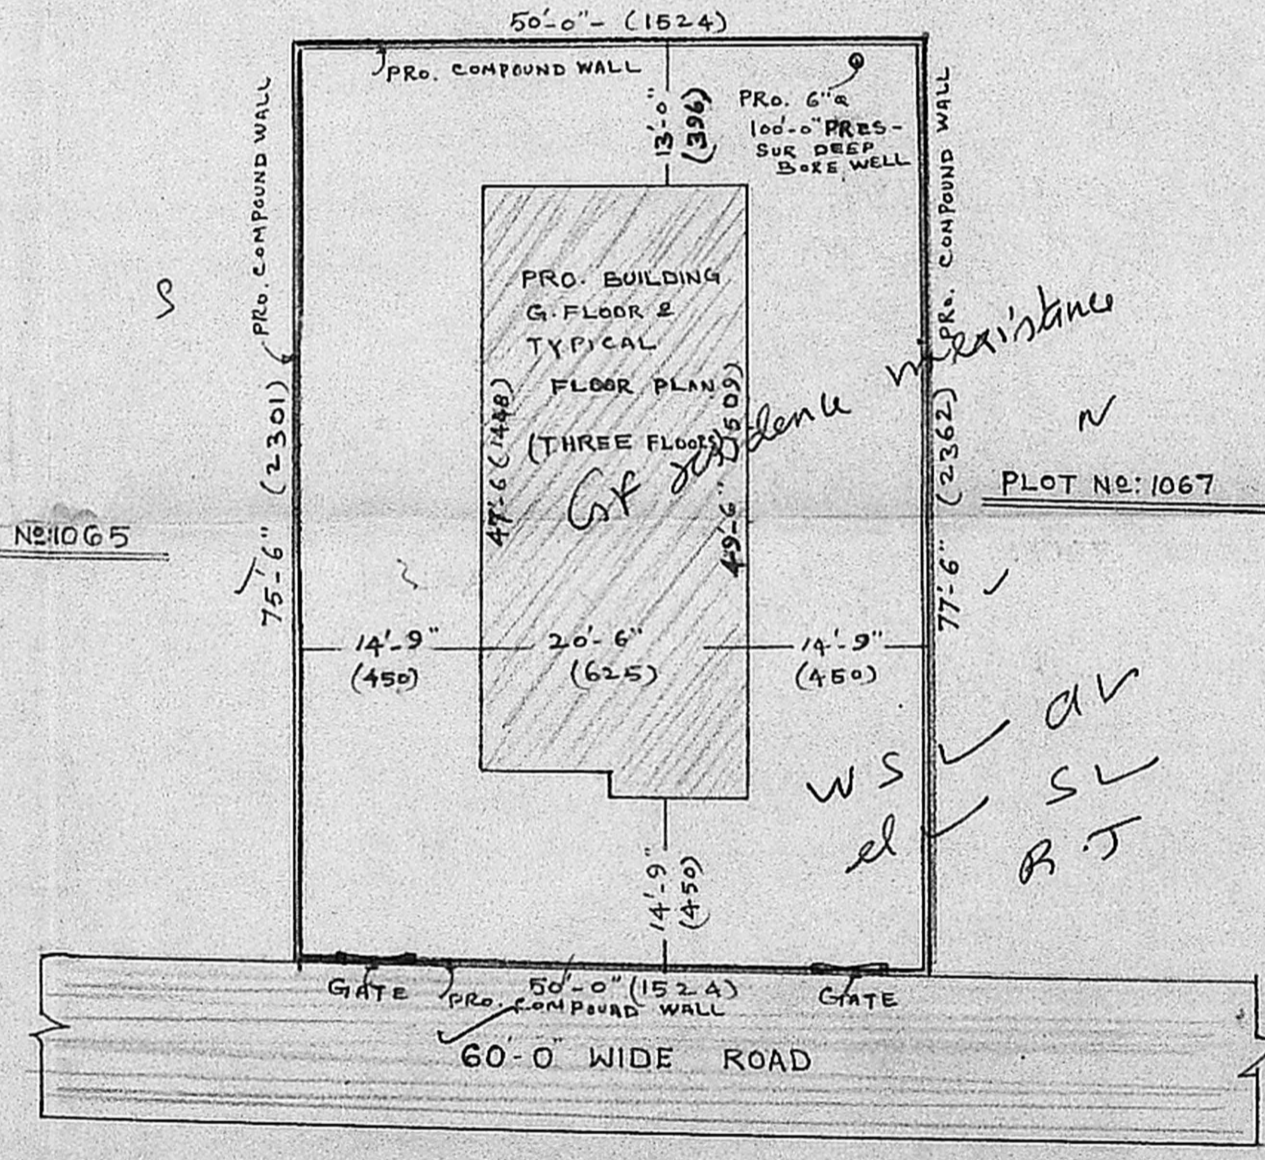 50'-0"- (1524)
PRO. COMPOUND WALL
13'-0"
(396)
PRO. 6"Ø
100'-0" PRES-
SUR DEEP
BORE WELL
PRO. COMPOUND WALL
PRO. COMPOUND WALL
S
PRO. BUILDING
G. FLOOR &
TYPICAL
FLOOR PLAN
(THREE FLOORS)
GF residence in existance
47'-6 (1448)
49'-6" (1509)
N
PLOT No: 1067
No: 1065
75'-6" (2301)
77'-6" (2362)
14'-9"
(450)
20'-6"
(625)
14'-9"
(450)
WS
el
SL
R.J
14'-9"
(450)
GATE
PRO. COMPOUND WALL
50'-0" (1524)
GATE
60'-0" WIDE ROAD